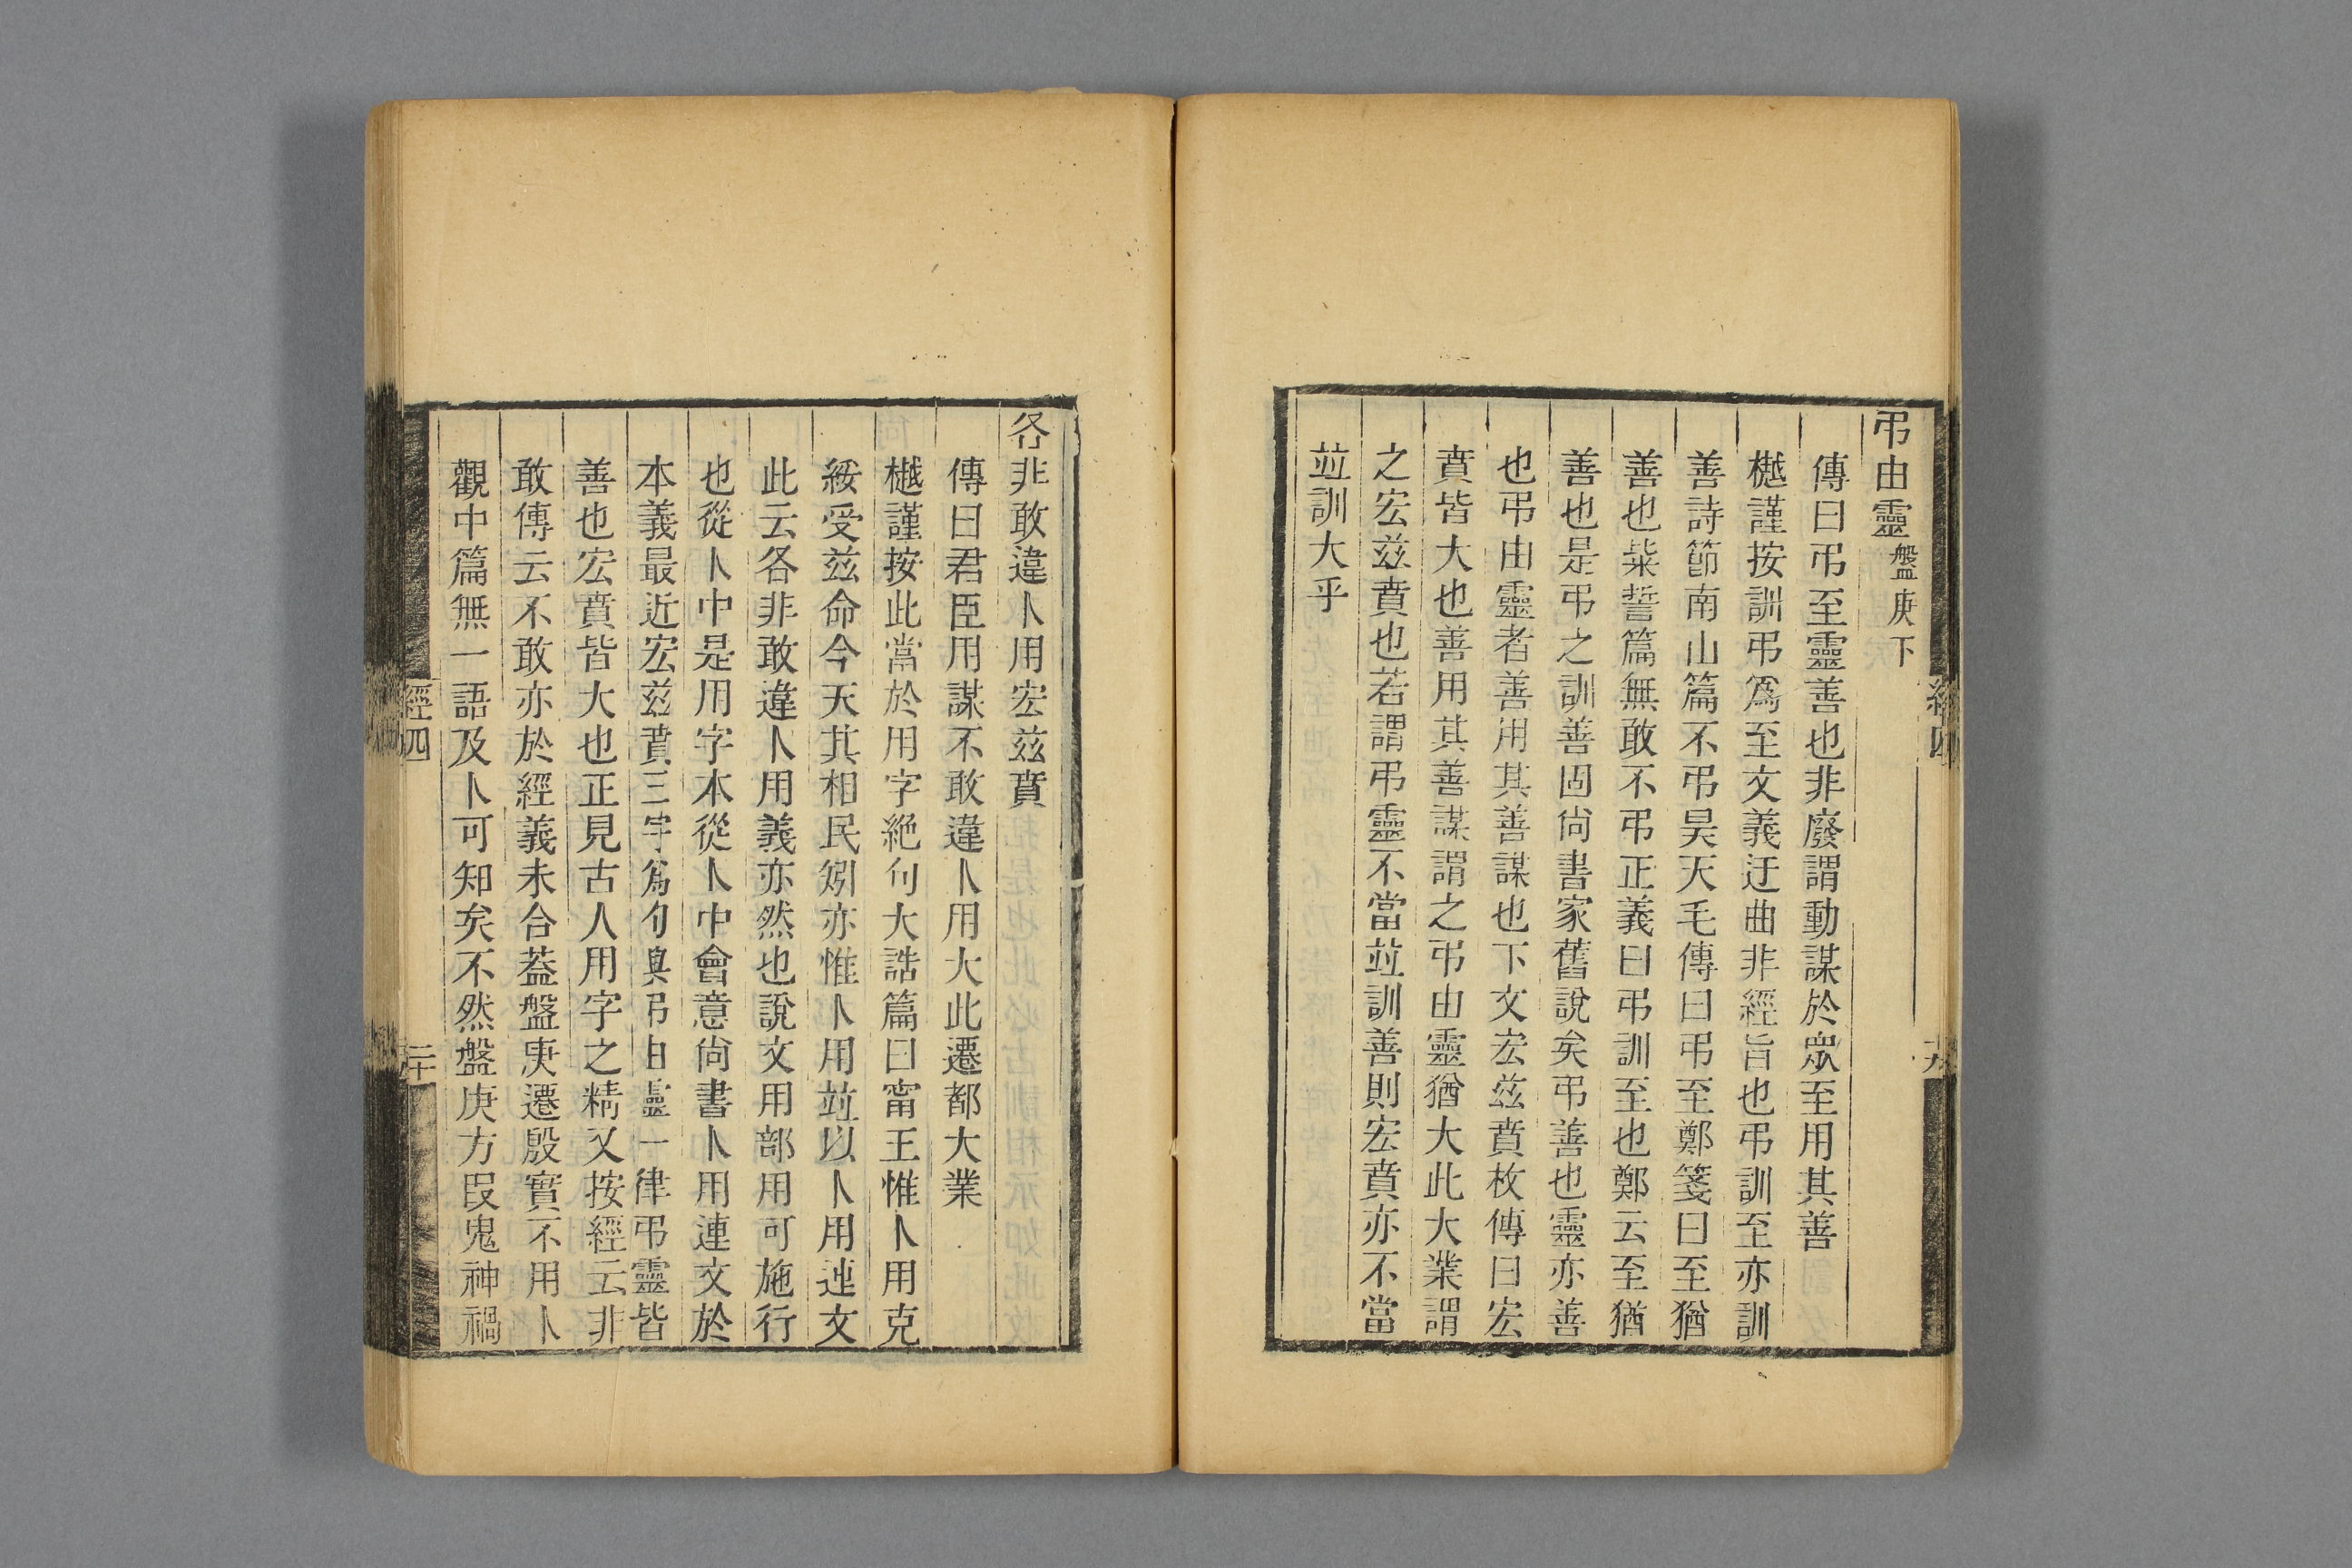 弔由靈盤庚下
傳曰弔至靈善也非廢謂動謀於眾至用其善
樾謹按訓弔爲至文義迂曲非經旨也弔訓至亦訓
善詩節南山篇不弔昊天毛傳曰弔至鄭箋曰至猶
善也粊誓篇無敢不弔正義曰弔訓至也鄭云至猶
善也是弔之訓善固尙書家舊說矣弔善也靈亦善
也弔由靈者善用其善謀也下文宏茲賁枚傳曰宏
賁皆大也善用其善謀謂之弔由靈猶大此大業謂
之宏茲賁也若謂弔靈不當竝訓善則宏賁亦不當
竝訓大乎
經四
十九
各非敢違卜用宏茲賁
傳曰君臣用謀不敢違卜用大此遷都大業
樾謹按此當於用字絶句大誥篇曰甯王惟卜用克
綏受茲命今天其相民矧亦惟卜用竝以卜用連文
此云各非敢違卜用義亦然也說文用部用可施行
也從卜中是用字本從卜中會意尙書卜用連文於
本義最近宏茲賁三字爲句與弔由靈一律弔靈皆
善也宏賁皆大也正見古人用字之精又按經云非
敢傳云不敢亦於經義未合葢盤庚遷殷實不用卜
觀中篇無一語及卜可知矣不然盤庚方叚鬼神禍
經四
二十